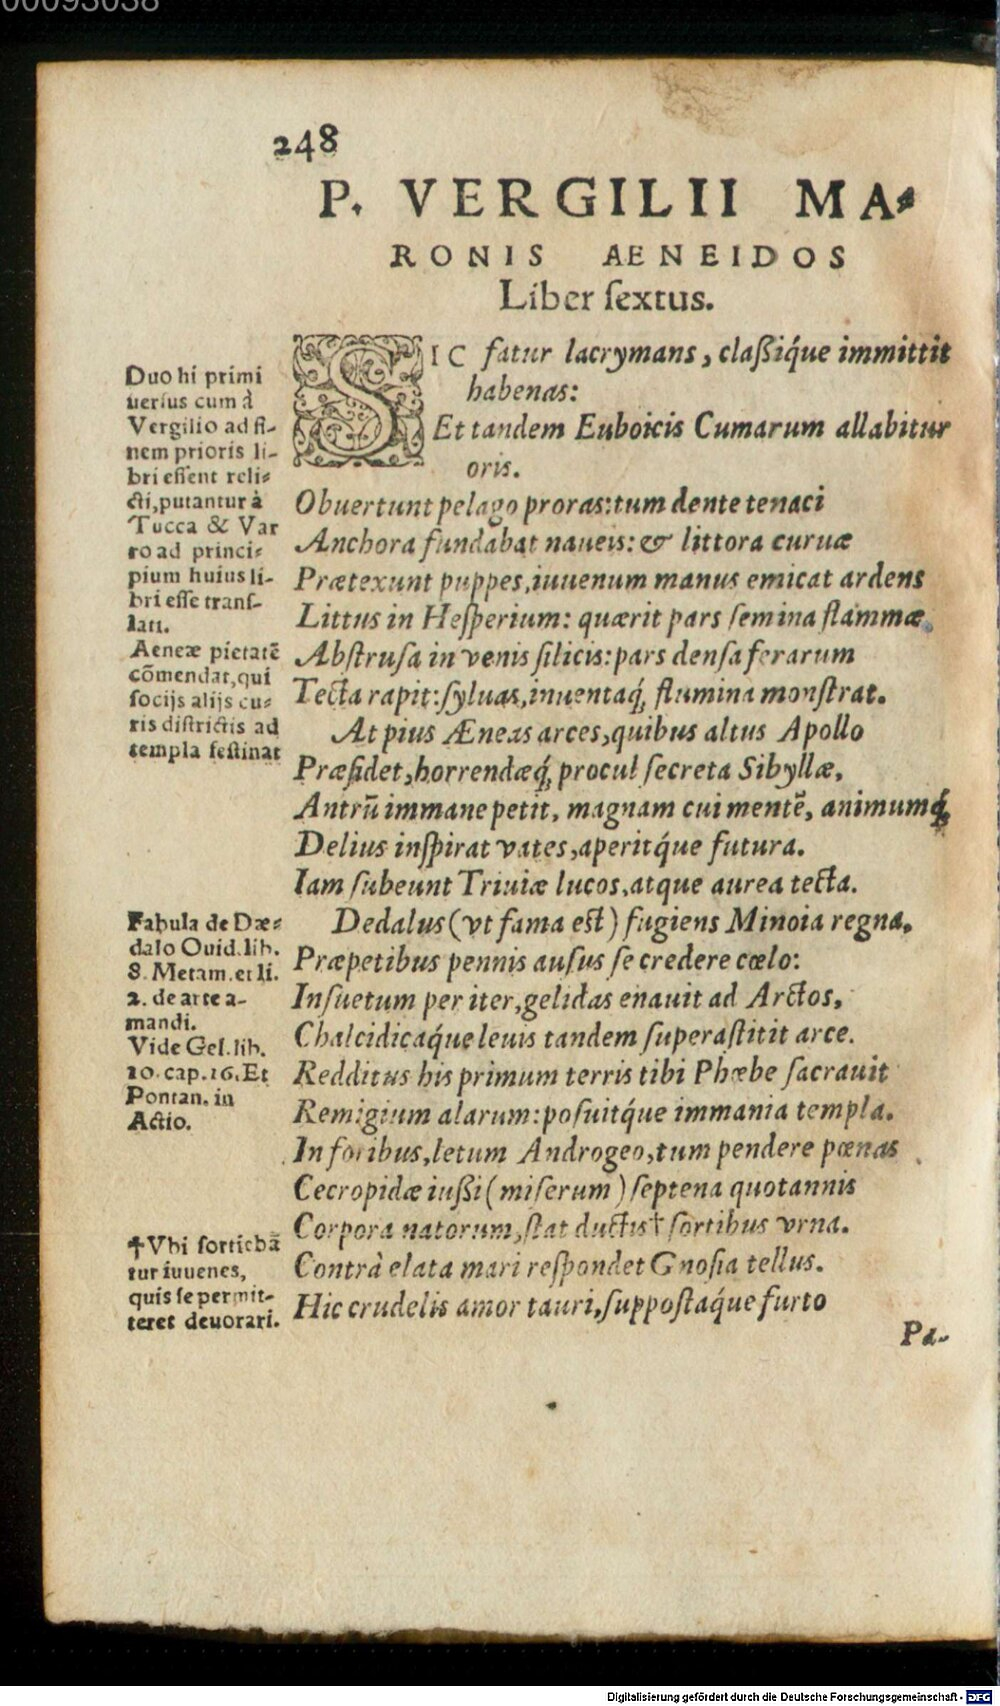 00093038
248
P. VERGILII MA-
RONIS AENEIDOS
Liber ſextus.
SIC fatur lacrymans, claßiq́ue immittit
habenas:
Et tandem Euboicis Cumarum allabitur
oris.
Obuertunt pelago proras: tum dente tenaci
Anchora fundabat naueis: & littora curuæ
Prætexunt puppes, iuuenum manus emicat ardens
Littus in Heſperium: quærit pars ſemina flammæ,
Abſtruſa in venis ſilicis: pars denſa ferarum
Tecta rapit: ſyluas, inuentaq́; flumina monſtrat.
At pius Æneas arces, quibus altus Apollo
Præſidet, horrendæq́; procul ſecreta Sibyllæ,
Antrū immane petit, magnam cui mentē, animumq́;
Delius inſpirat vates, aperitq́ue futura.
Iam ſubeunt Triuiæ lucos, atque aurea tecta.
Dedalus (vt fama eſt) fugiens Minoia regna,
Præpetibus pennis auſus ſe credere cœlo:
Inſuetum per iter, gelidas enauit ad Arctos,
Chalcidicaq́ue leuis tandem ſuperaſtitit arce.
Redditus his primum terris tibi Phœbe ſacrauit
Remigium alarum: poſuitq́ue immania templa.
In foribus, letum Androgeo, tum pendere pœnas
Cecropidæ iußi (miſerum) ſeptena quotannis
Corpora natorum, ſtat ductis† ſortibus vrna.
Contrà elata mari reſpondet Gnoſia tellus.
Hic crudelis amor tauri, ſuppoſtaq́ue furto
Pa-
Duo hi primi
uerſus cum à
Vergilio ad fi-
nem prioris li-
bri eſſent reli-
cti, putantur à
Tucca & Var
ro ad princi-
pium huius li-
bri eſſe tranſ-
lati.
Aeneæ pietatē
cōmendat, qui
ſocijs alijs cu-
ris diſtrictis ad
templa feſtinat
Fabula de Dæ-
dalo Ouid. lib.
8. Metam. et li.
2. de arte a-
mandi.
Vide Gel. lib.
10. cap. 16. Et
Pontan. in
Actio.
†Vbi ſortiebā
tur iuuenes,
quis ſe permit-
teret deuorari.
Digitalisierung gefördert durch die Deutsche Forschungsgemeinschaft - DFG